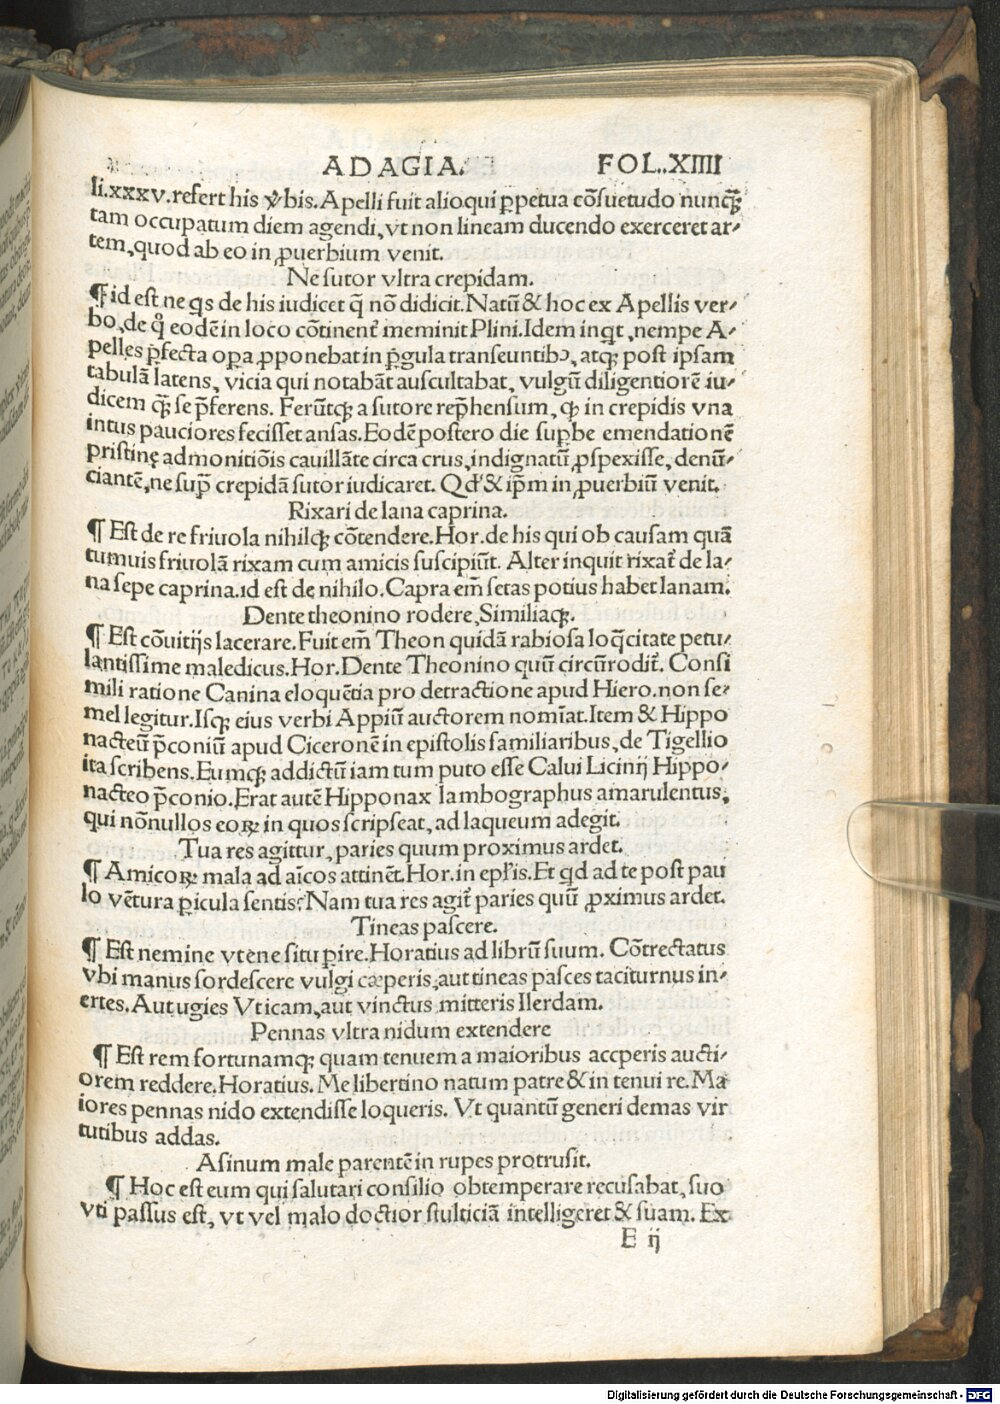 ADAGIA. FOL..XIIII
li.xxxv.refert his ꝟbis.Apelli fuit alioqui ꝑpetua cõsuetudo nunꝗ̃
tam occupatum diem agendi,vt non lineam ducendo exerceret ar-
tem,quod ab eo in ꝓuerbium venit.
Ne sutor vltra crepidam.
¶ id est ne qͥs de his iudicet q̃ nõ didicit.Natũ & hoc ex Apellis ver-
bo,de q̊ eodẽ in loco cõtinent᷑ meminit Plini.Idem inqͥt,nempe A-
pelles ꝑfecta oꝑa ꝓponebat in ꝑgula transeuntibꝰ,atqꝫ post ipsam
tabulã latens, vicia qui notabãt auscultabat, vulgũ diligentiorẽ iu-
dicem ꝗ̃ se p̃ferens. Ferũtqꝫ a sutore rep̃hensum, ꝙ in crepidis vna
intus pauciores fecisset ansas.Eodẽ postero die supbe emendationẽ
pristinę admonitiõis cauillãte circa crus,indignatũ ꝓspexisse, denũ-
ciantẽ,ne sup̃ crepidã sutor iudicaret. Qd' & ip̃m in ꝓuerbiũ venit.
Rixari de lana caprina.
¶ Est de re friuola nihilqꝫ cõtendere.Hor.de his qui ob causam quã
tumuis friuolã rixam cum amicis suscipiũt. Alter inquit rixat᷑ de la-
na sepe caprina.id est de nihilo.Capra em̃ setas potius habet lanam.
Dente theonino rodere,Similiaqꝫ.
¶ Est cõuitijs lacerare.Fuit em̃ Theon quidã rabiosa loq̃citate petu-
lantissime maledicus.Hor.Dente Theonino quũ circũrodit᷑. Consi
mili ratione Canina eloquẽtia pro detractione apud Hiero.non se-
mel legitur.Isqꝫ eius verbi Appiũ auctorem nomĩat.Item & Hippo
nacteũ p̃coniũ apud Ciceronẽ in epistolis familiaribus,de Tigellio
ita scribens.Eumqꝫ addictũ iam tum puto esse Calui Licinij Hippo-
nacteo p̃conio.Erat autẽ Hipponax Iambographus amarulentus,
qui nõnullos eoꝝ in quos scripseat, ad laqueum adegit.
Tua res agittur, paries quum proximus ardet.
¶ Amicoꝝ mala ad aĩcos attinẽt.Hor.in epl'is.Et qͥd ad te post pau
lo vẽtura ꝑicula sentis?Nam tua res agit᷑ paries quũ ꝓximus ardet.
Tineas pascere.
¶ Est nemine vtẽne situ ꝑire.Horatius ad librũ suum. Cõtrectatus
vbi manus sordescere vulgi cæperis,aut tineas pasces taciturnus in-
ertes.Aut ugies Vticam,aut vinctus mitteris Ilerdam.
Pennas vltra nidum extendere
¶ Est rem fortunamqꝫ quam tenuem a maioribus accperis aucti-
orem reddere.Horatius. Me libertino natum patre & in tenui re.Ma
iores pennas nido extendisse loqueris. Vt quantũ generi demas vir
tutibus addas.
Asinum male parentẽ in rupes protrusit.
¶ Hoc est eum qui salutari consilio obtemperare recusabat, suo
vti passus est, vt vel malo doctior stulticiã intelligeret & suam. Ex
E ij
Digitalisierung gefördert durch die Deutsche Forschungsgemeinschaft - DFG